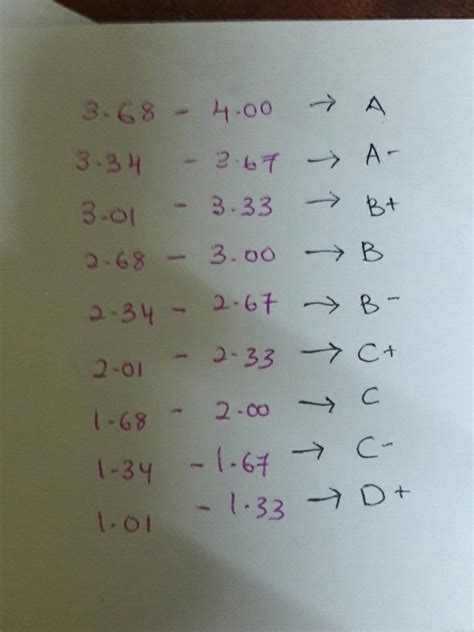 3.68 - 4.00 → A
3.34 - 3.67 → A-
3.01 - 3.33 → B+
2.68 - 3.00 → B
2.34 - 2.67 → B-
2.01 - 2.33 → C+
1.68 - 2.00 → C
1.34 - 1.67 → C-
1.01 - 1.33 → D+